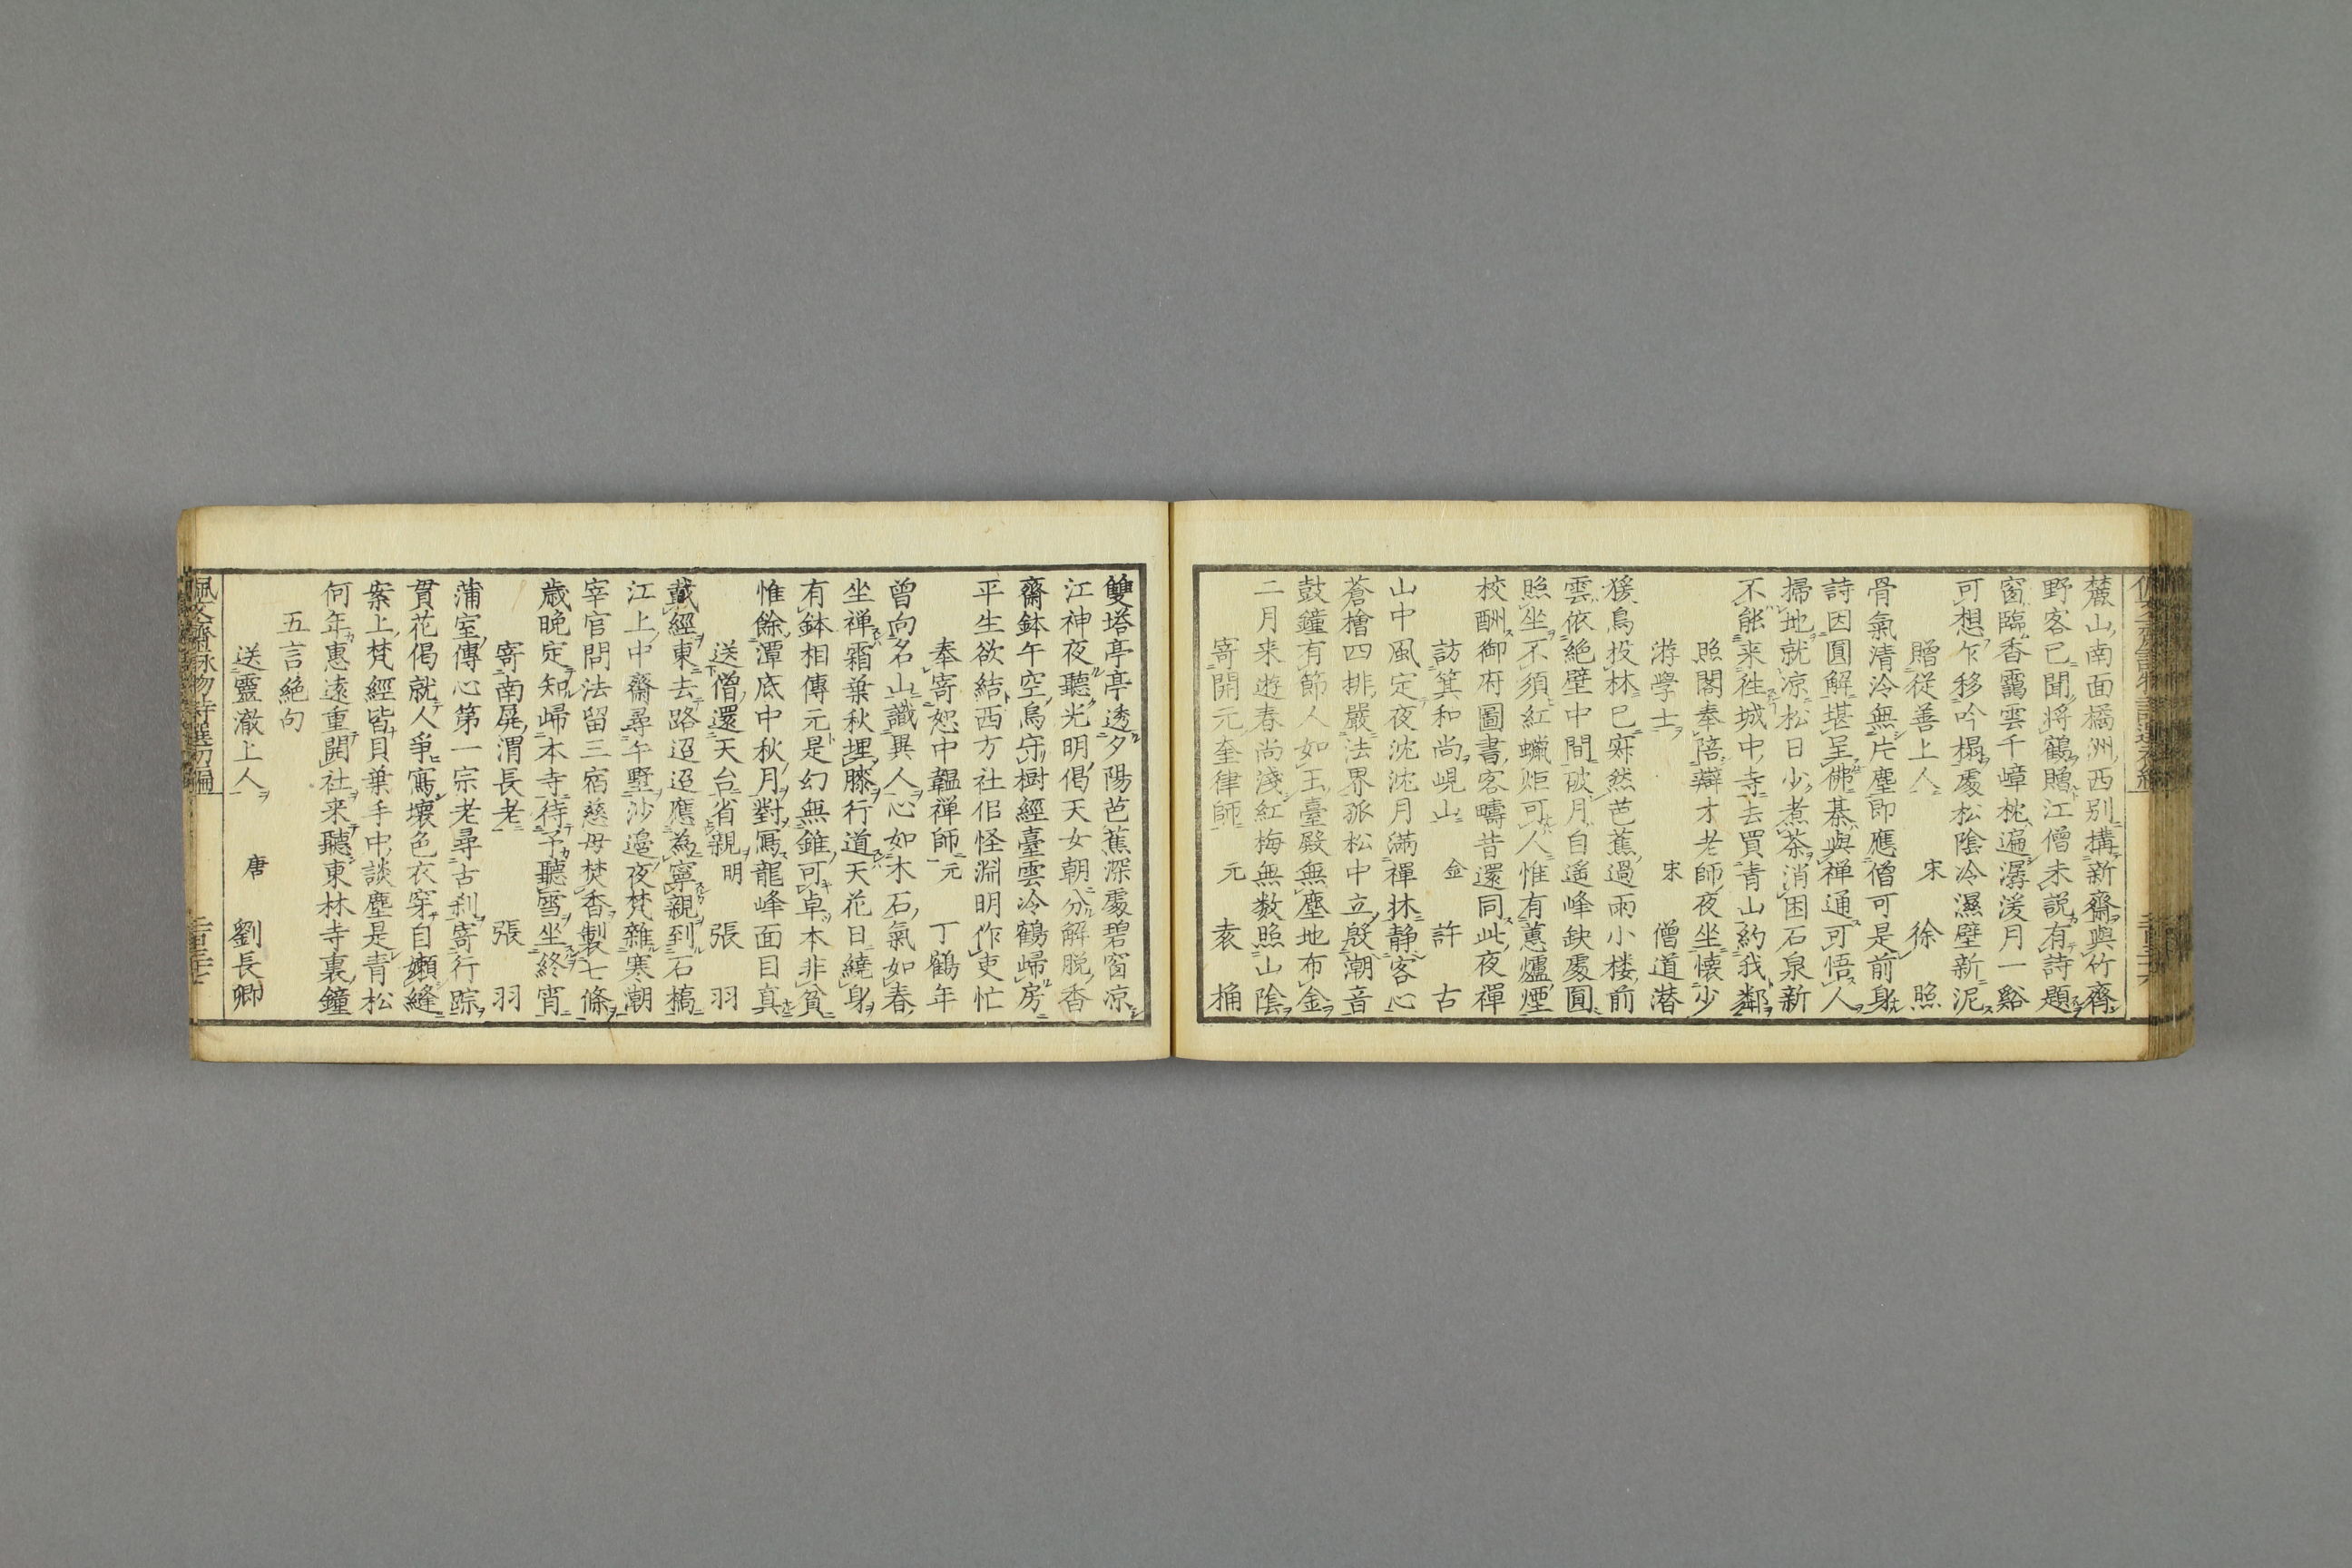 麓山南面橘洲西别搆新齋與竹齊
野客已聞將鶴贈江僧未説有詩題
窗臨香靄雲千嶂枕遍潺湲月一谿
可想乍移吟榻處松陰冷濕壁新泥
贈従善上人 宋 徐照
骨氣清泠無片塵即應僧可是前身
詩因圓解堪呈佛棊與禅通可悟人
掃地就凉松日少煮茶消困石泉新
不能来徃城中寺去買青山約我鄰
照閣奉陪辯才老師夜坐懐少
游學士 宋 僧道潜
猨鳥投林已寂然芭蕉過雨小楼前
雲依絶壁中間破月自遥峰缺處圓
照坐不須紅蠟炬可人惟有蕙爐煙
校酬御府圖書客疇昔還同此夜禪
訪箕和尚峴山 金 許古
山中風定夜沈沈月滿禪牀静客心
蒼檜四排嚴法界孤松中立殷潮音
鼓鐘有節人如玉臺殿無塵地布金
二月来遊春尚淺紅梅無数照山陰
寄開元奎律師 元 袁桷
雙塔亭亭透夕陽芭蕉深處碧窗凉
江神夜聽光明偈天女朝分解脱香
齋鉢午空烏守樹經臺雲冷鶴歸房
平生欲結西方社侣怪淵明作吏忙
奉寄恕中韞禅師 元 丁鶴年
曾向名山識異人心如木石氣如春
坐禅霜葉秋埋膝行道天花日繞身
有鉢相傳元是幻無錐可卓本非貧
惟餘潭底中秋月對寫龍峰面目真
送僧還天台省親 明 張羽
戴經東去路迢迢應為寧親到石橋
江上中齋尋午墅沙邉夜梵雜寒潮
宰官問法留三宿慈母焚香製七條
歳晚定知歸本寺待予聽雪坐終宵
寄南屏渭長老 張羽
蒲室傳心第一宗老尋古刹寄行踪
貫花偈就人爭寫壊色衣穿自嬾縫
案上梵經皆貝葉手中談麈是青松
何年惠遠重開社来聽東林寺裏鐘
五言絶句
送靈澈上人 唐 劉長卿
佩文齋詠物詩選初編